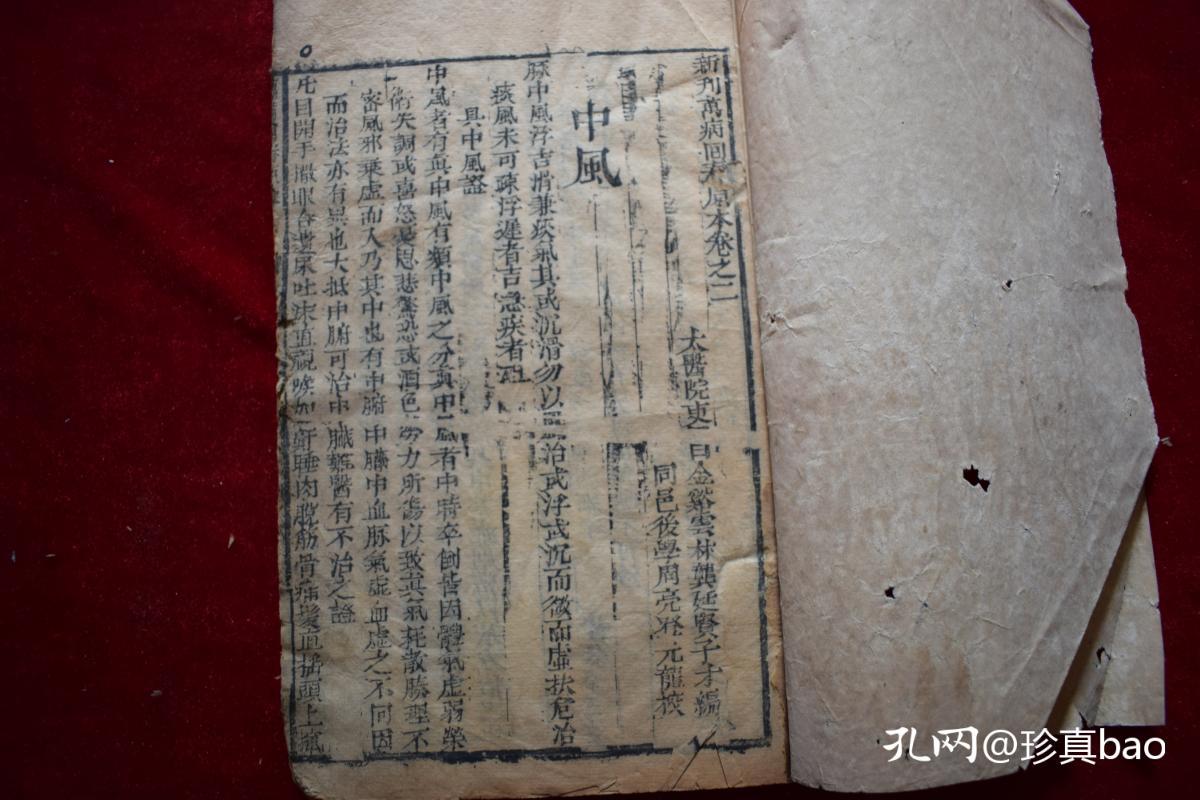 新刊萬病回春原本卷之二
太醫院吏目金谿雲林龔廷賢子才編
同邑後學周亮登元龍校
中風
脉中風浮吉滑兼痰氣其或沉滑勿以風治或浮或沉而微而虛扶危治
痰風未可疎浮遲者吉急疾者殂
具中風證
中風者有真中風有類中風之分真中風者中時卒倒皆因體氣虛弱榮
衛失調或喜怒憂思悲驚恐或酒色勞力所傷以致真氣耗散腠理不
密風邪乘虛而入乃其中也有中腑中臟中血脉氣虛血虛之不同因
而治法亦有異也大抵中腑可治中臟難醫有不治之證
凡口開手撒眼合遺尿吐沫直視喉如鼾睡肉脫筋骨痛髮直搖頭上竄
孔网@珍真bao